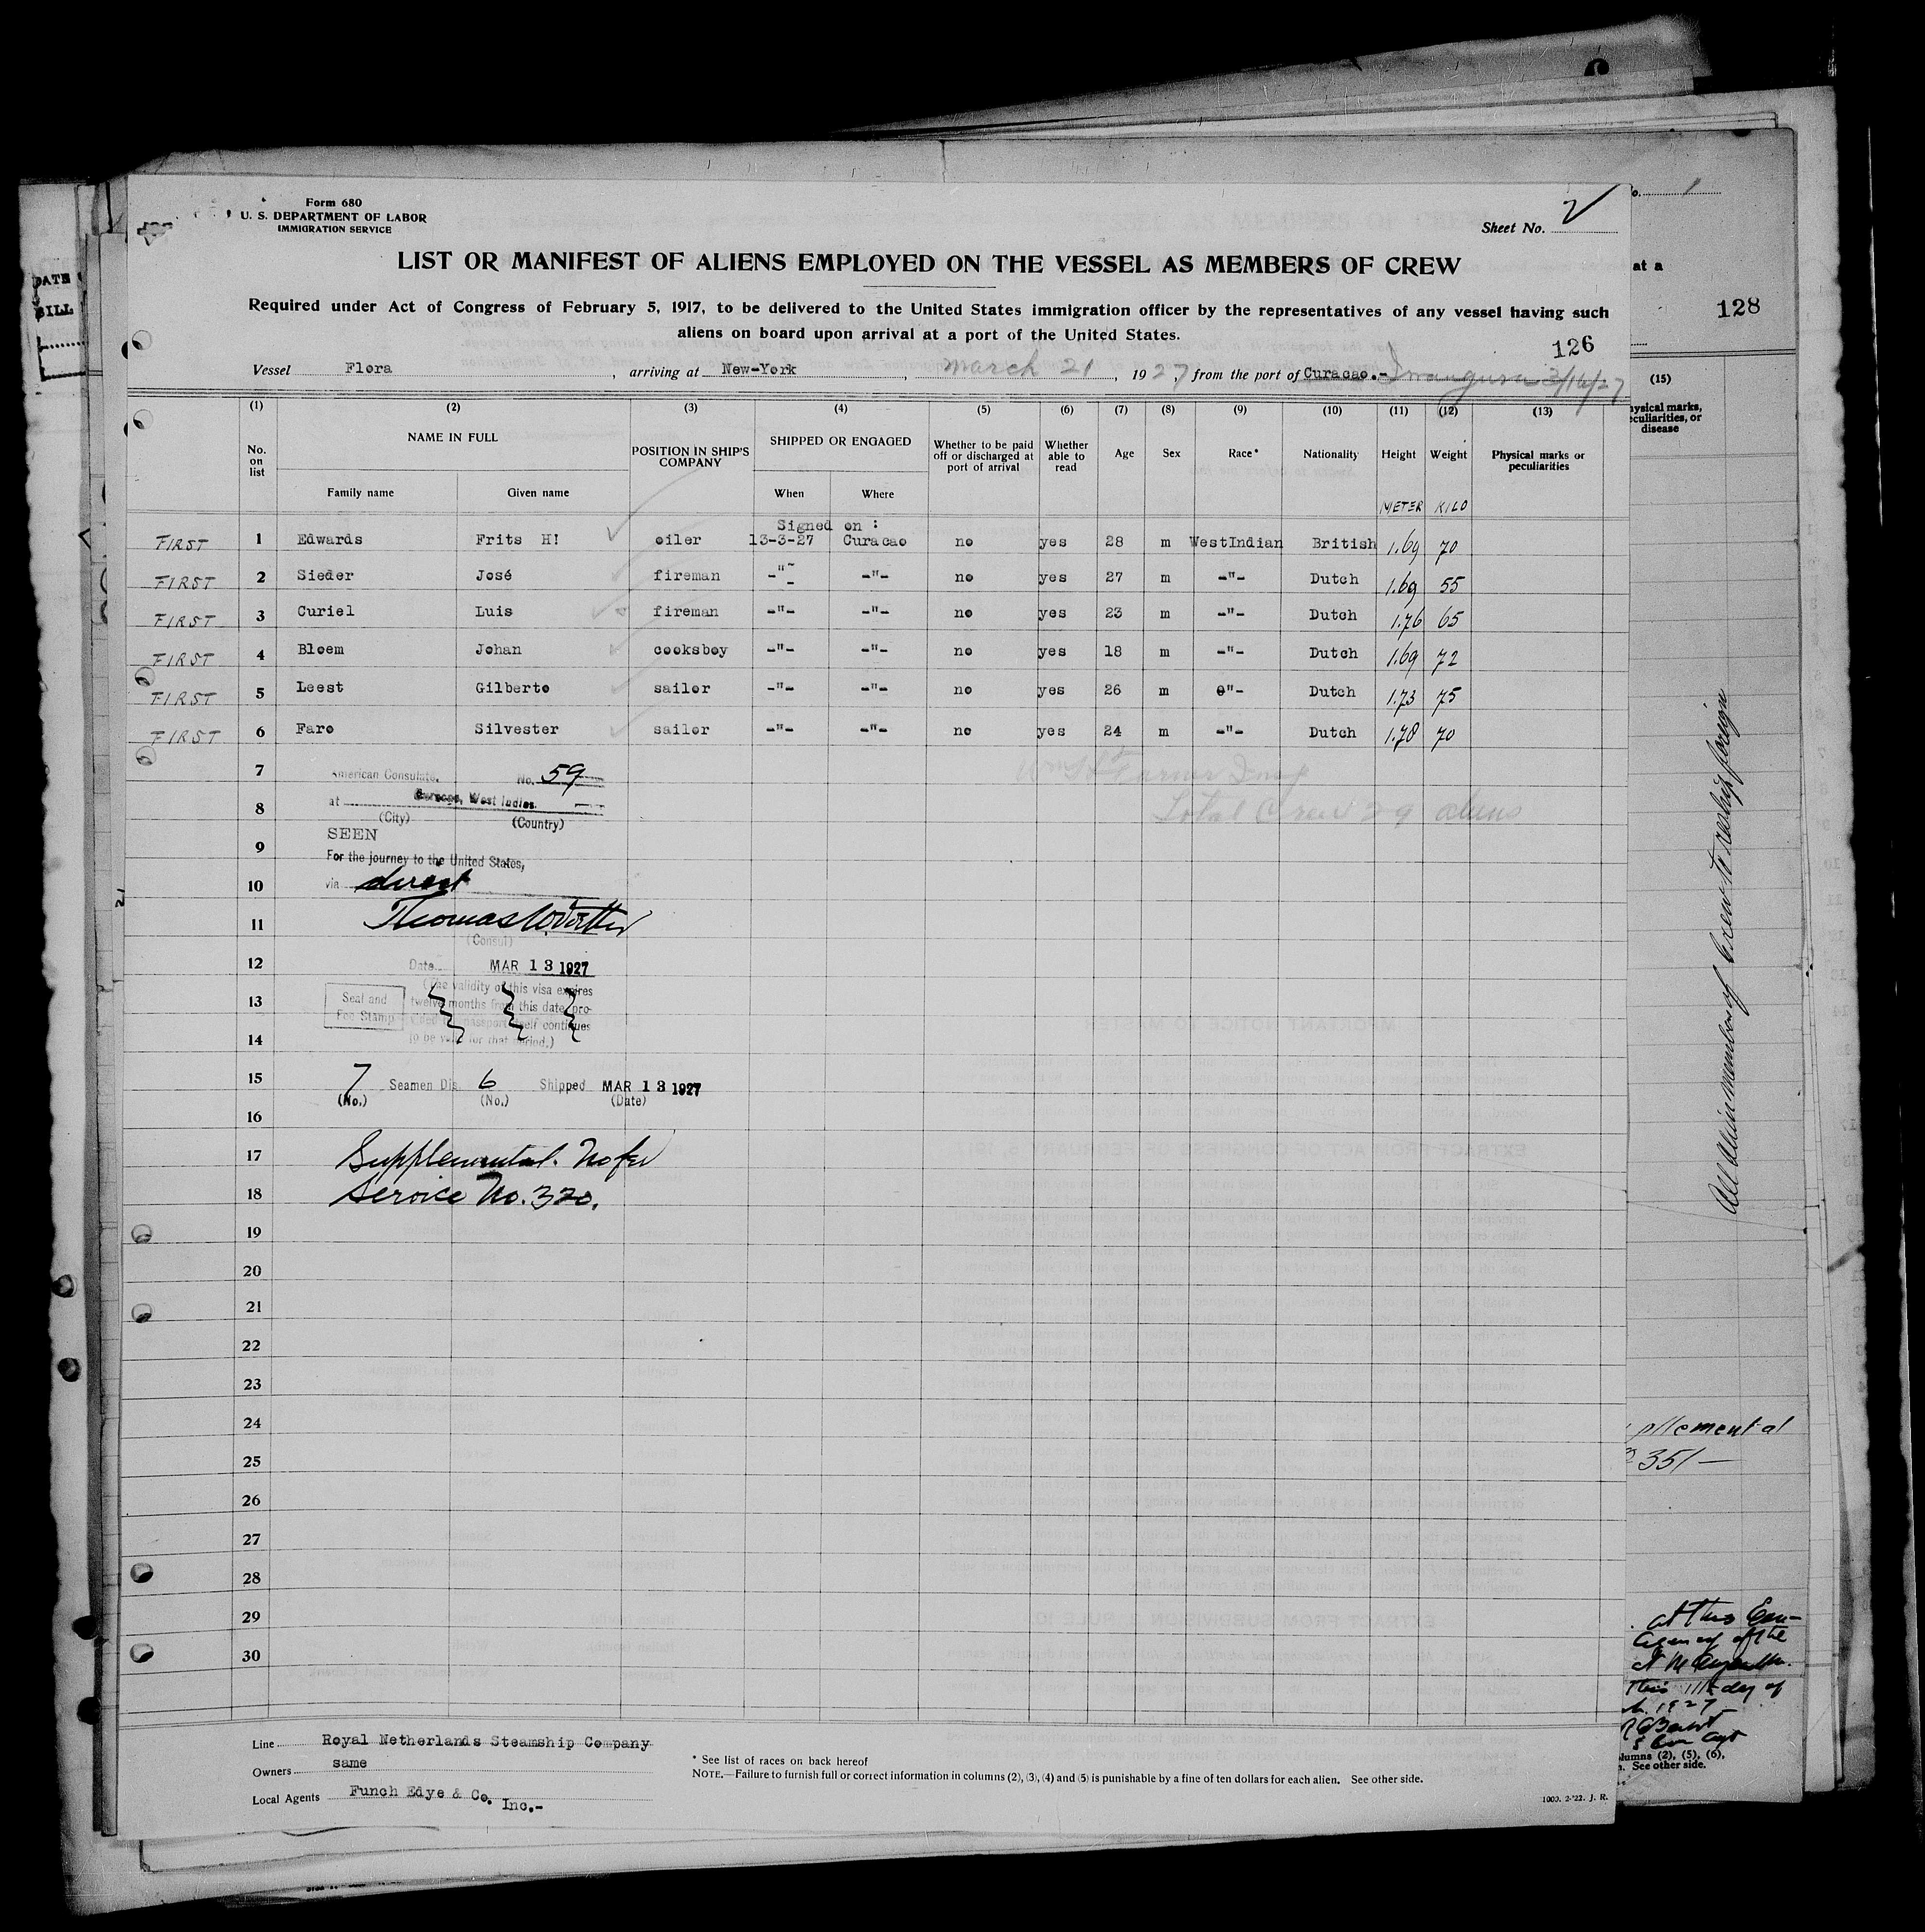 Form 680
U. S. DEPARTMENT OF LABOR
IMMIGRATION SERVICE
Sheet No. 2
LIST OR MANIFEST OF ALIENS EMPLOYED ON THE VESSEL AS MEMBERS OF CREW
Required under Act of Congress of February 5, 1917, to be delivered to the United States immigration officer by the representatives of any vessel having such
aliens on board upon arrival at a port of the United States.
126
Vessel Flora, arriving at New-York, March 21, 1927, from the port of Curacao.- 3/14/27
(1) (2) (3) (4) (5) (6) (7) (8) (9) (10) (11) (12) (13)
No. on list NAME IN FULL POSITION IN SHIP'S COMPANY SHIPPED OR ENGAGED Whether to be paid off or discharged at port of arrival Whether able to read Age Sex Race* Nationality Height Weight Physical marks or peculiarities
Family name Given name When Where METER KILO
Signed on :
FIRST 1 Edwards Frits H! oiler 13-3-27 Curacao no yes 28 m WestIndian British 1.69 70
FIRST 2 Sieder José fireman -"- -"- no yes 27 m -"- Dutch 1.69 55
FIRST 3 Curiel Luis fireman -"- -"- no yes 23 m -"- Dutch 1.76 65
FIRST 4 Bloem Johan cooksboy -"- -"- no yes 18 m -"- Dutch 1.69 72
FIRST 5 Leest Gilberto sailor -"- -"- no yes 26 m -"- Dutch 1.73 75
FIRST 6 Faro Silvester sailor -"- -"- no yes 24 m -"- Dutch 1.78 70
7 American Consulate, No. 59
8 at Curacao, West Indies.
(City) (Country)
Total Crew 29 aliens
SEEN
9
For the journey to the United States,
10 via direct
11 Thomas
(Consul)
12 Date MAR 13 1927
(The validity of this visa expires
13 Seal and Fee Stamp twelve months from this date, pro-
vided the passport itself continues
14 to be valid for that period.)
15 7 Seamen Dis. 6 Shipped MAR 13 1927
(No.) (No.) (Date)
16
17 Supplemental. No fee
18 Service No. 320.
19
20
21
22
23
24
25
26
27
28
29
30
Line Royal Netherlands Steamship Company
Owners same
Local Agents Funch Edye & Co. Inc.-
* See list of races on back hereof
NOTE.—Failure to furnish full or correct information in columns (2), (3), (4) and (5) is punishable by a fine of ten dollars for each alien. See other side.
1000. 2-'22. J. R.
DATE
BILL
at a
128
(15)
ysical marks,
eculiarities, or
disease
All alien members of crew to reship foreign
plemental
351—
at this
agency of the
this 11th day of
1927
lumns (2), (5), (6),
See other side.